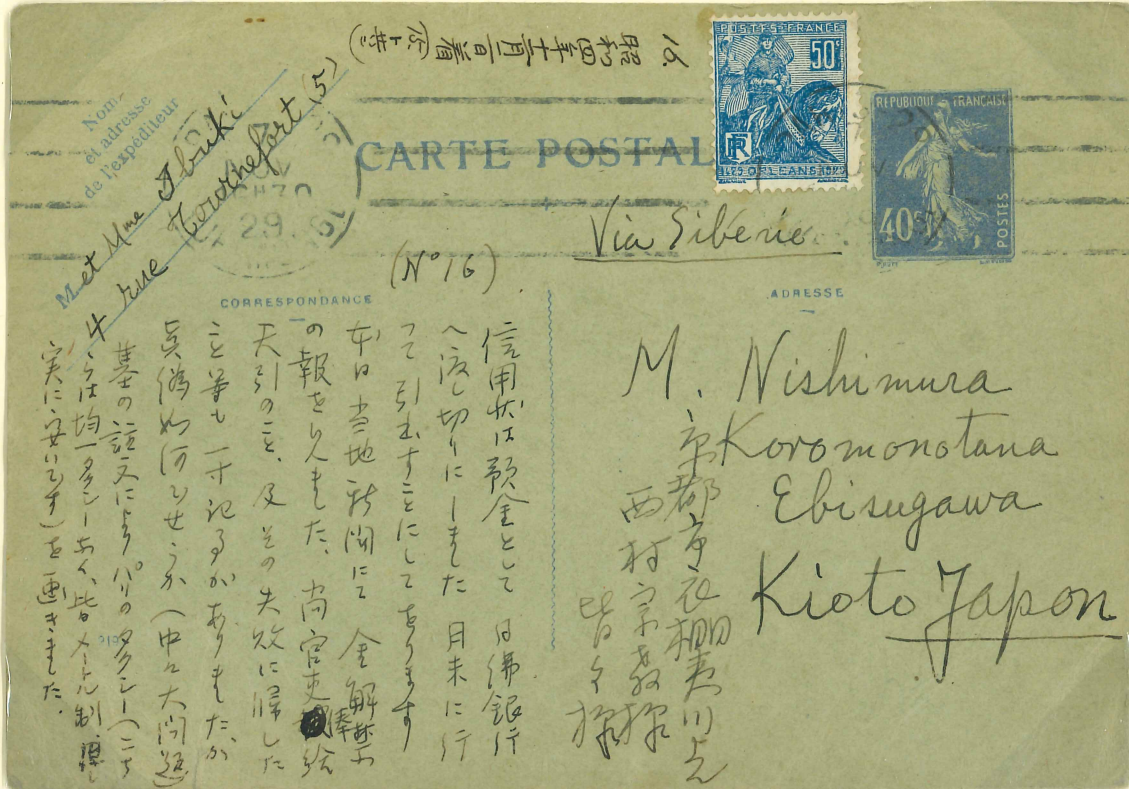 16. 昭和四年十二月一日着
Nom
et adresse
de l'expéditeur
M et Mme Ibuki
4 rue Torochefort (5)
CARTE POSTALE
POSTES FRANCE
50c
RF
1429 ORLEANS 1929
REPUBLIQUE FRANÇAISE
40c
POSTES
29
Via Siberie
(No 16)
CORRESPONDANCE
ADRESSE
信用状は預金として 日佛銀行
へ渡し切りにしました 月末に行
って引出すことにしてをります
本日当地新聞にて 金解禁
の報を見ました、尚官吏俸給
天引のこと、及その失敗に帰した
こと等も一寸記事がありましたが
真偽如何でせうか(中々大問題
基の註文によりパリのタクシー(こち
らは均一タクシーなく、皆メートル制、
実に安いです)を画きました。
M. Nishimura
Koromonotana
Ebisugawa
Kioto Japon
京都市衣棚夷川上ル
西村宗教様
皆々様